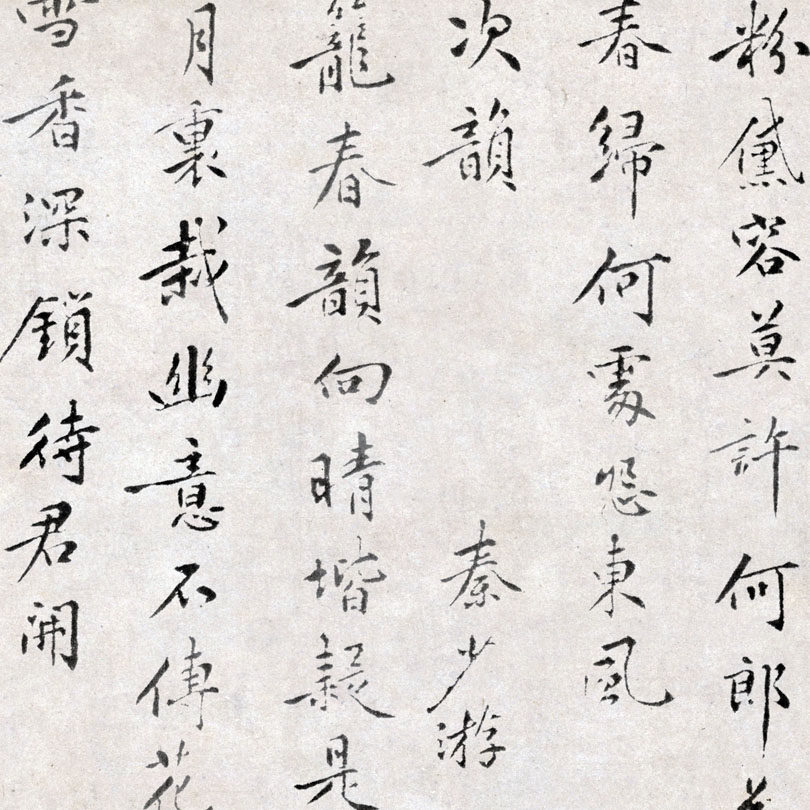 粉黛容莫許何郎
春歸何處怨東風
次韻 秦少游
籠春韻向晴堦疑是
月裏栽幽意不傳花
雪香深鎖待君開